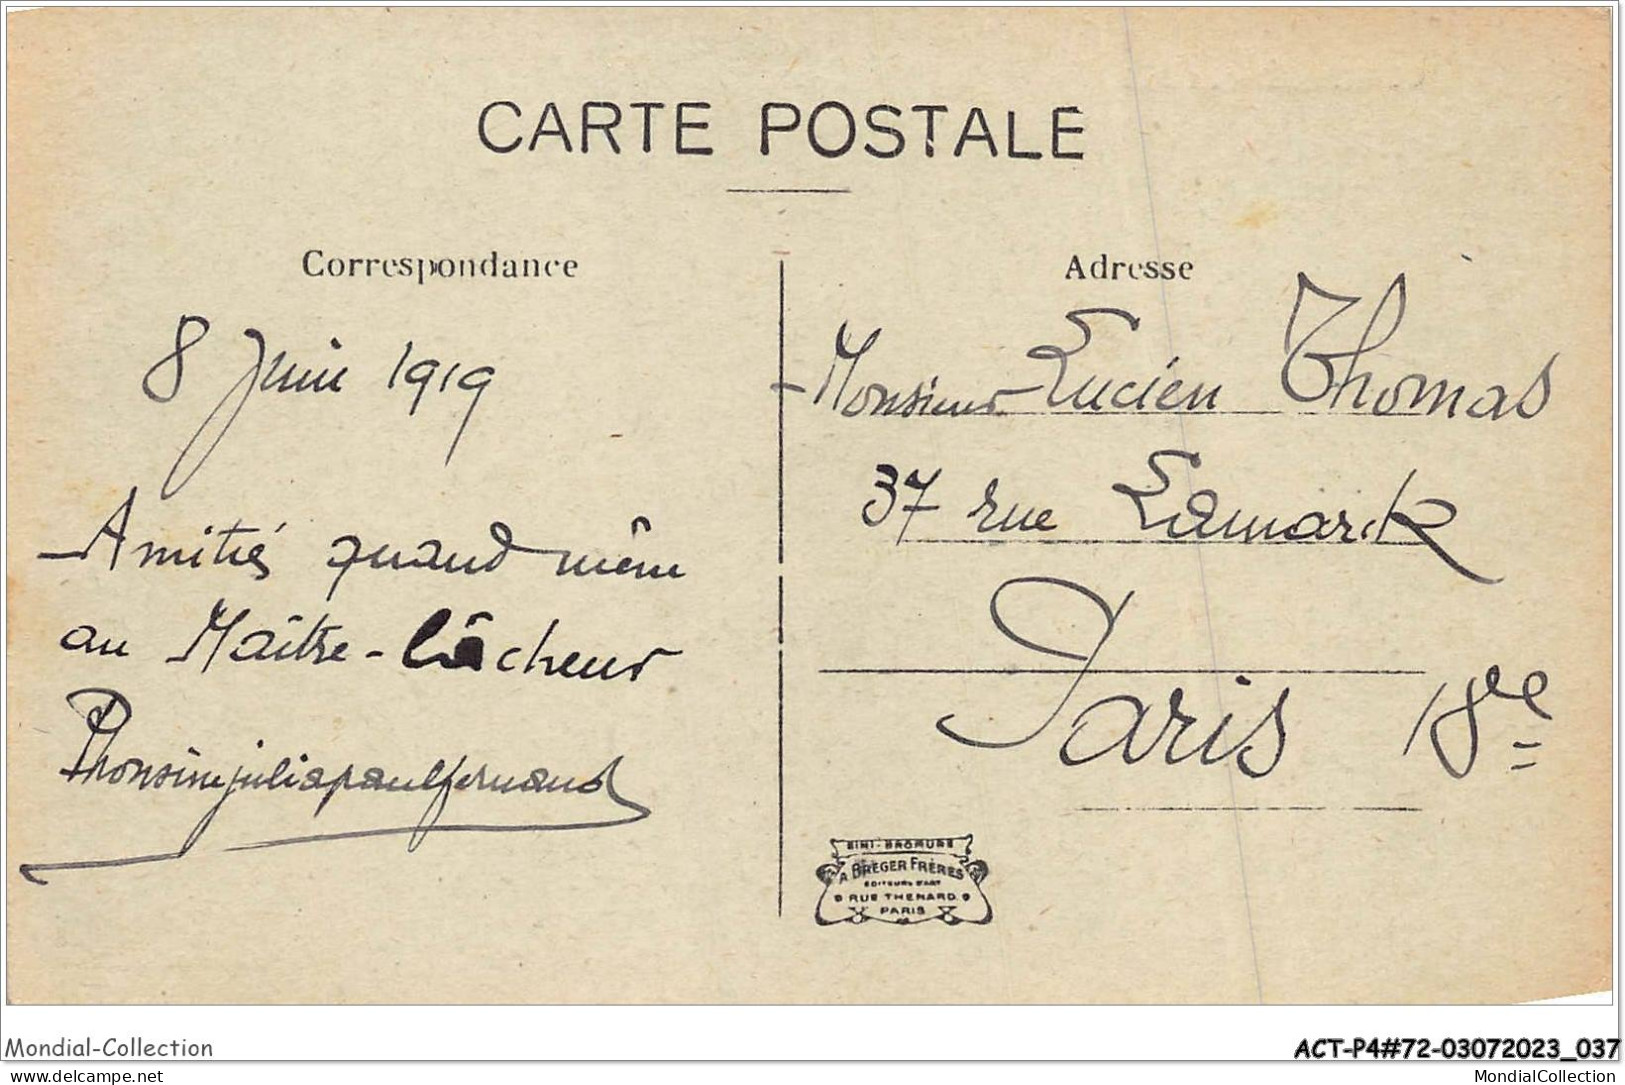 CARTE POSTALE
Correspondance
8 Juin 1919
Amitiés quand même
au Maître-lâcheur
Phonsinejuliapaulfernand
Adresse
Monsieur Lucien Thomas
37 rue Lamarck
Paris 18e
SIMI-BROMURE
A. BREGER FRÈRES
EDITEURS D'ART
9 RUE THENARD 9
PARIS
Mondial-Collection
ACT-P4#72-03072023_037
delcampe.net
MondialCollection